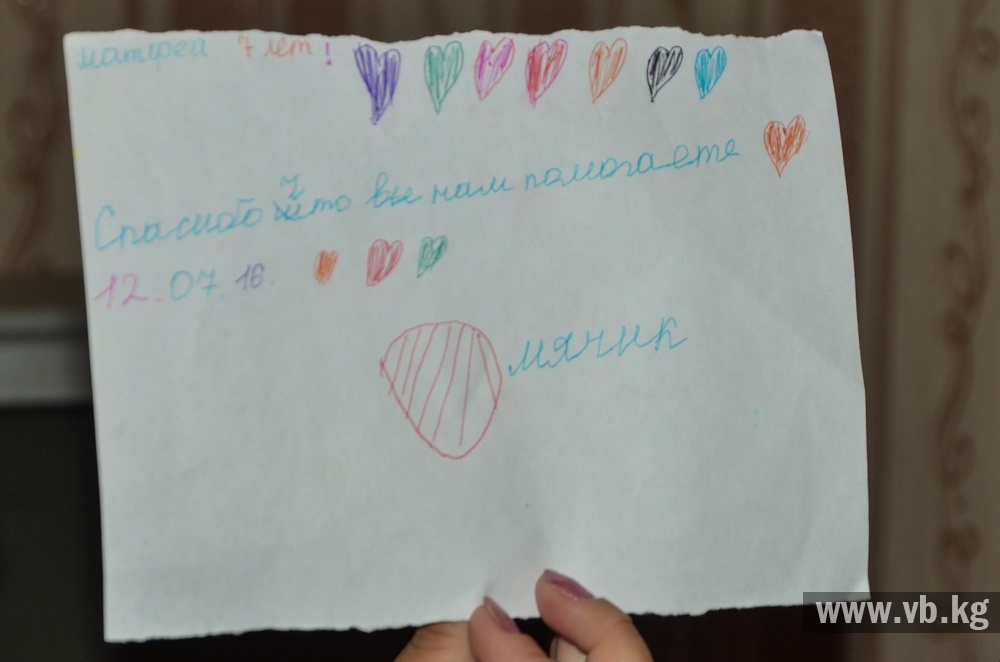 матфей 7 лет!
Спасибо что вы нам помогаете
12.07.16.
мячик
www.vb.kg